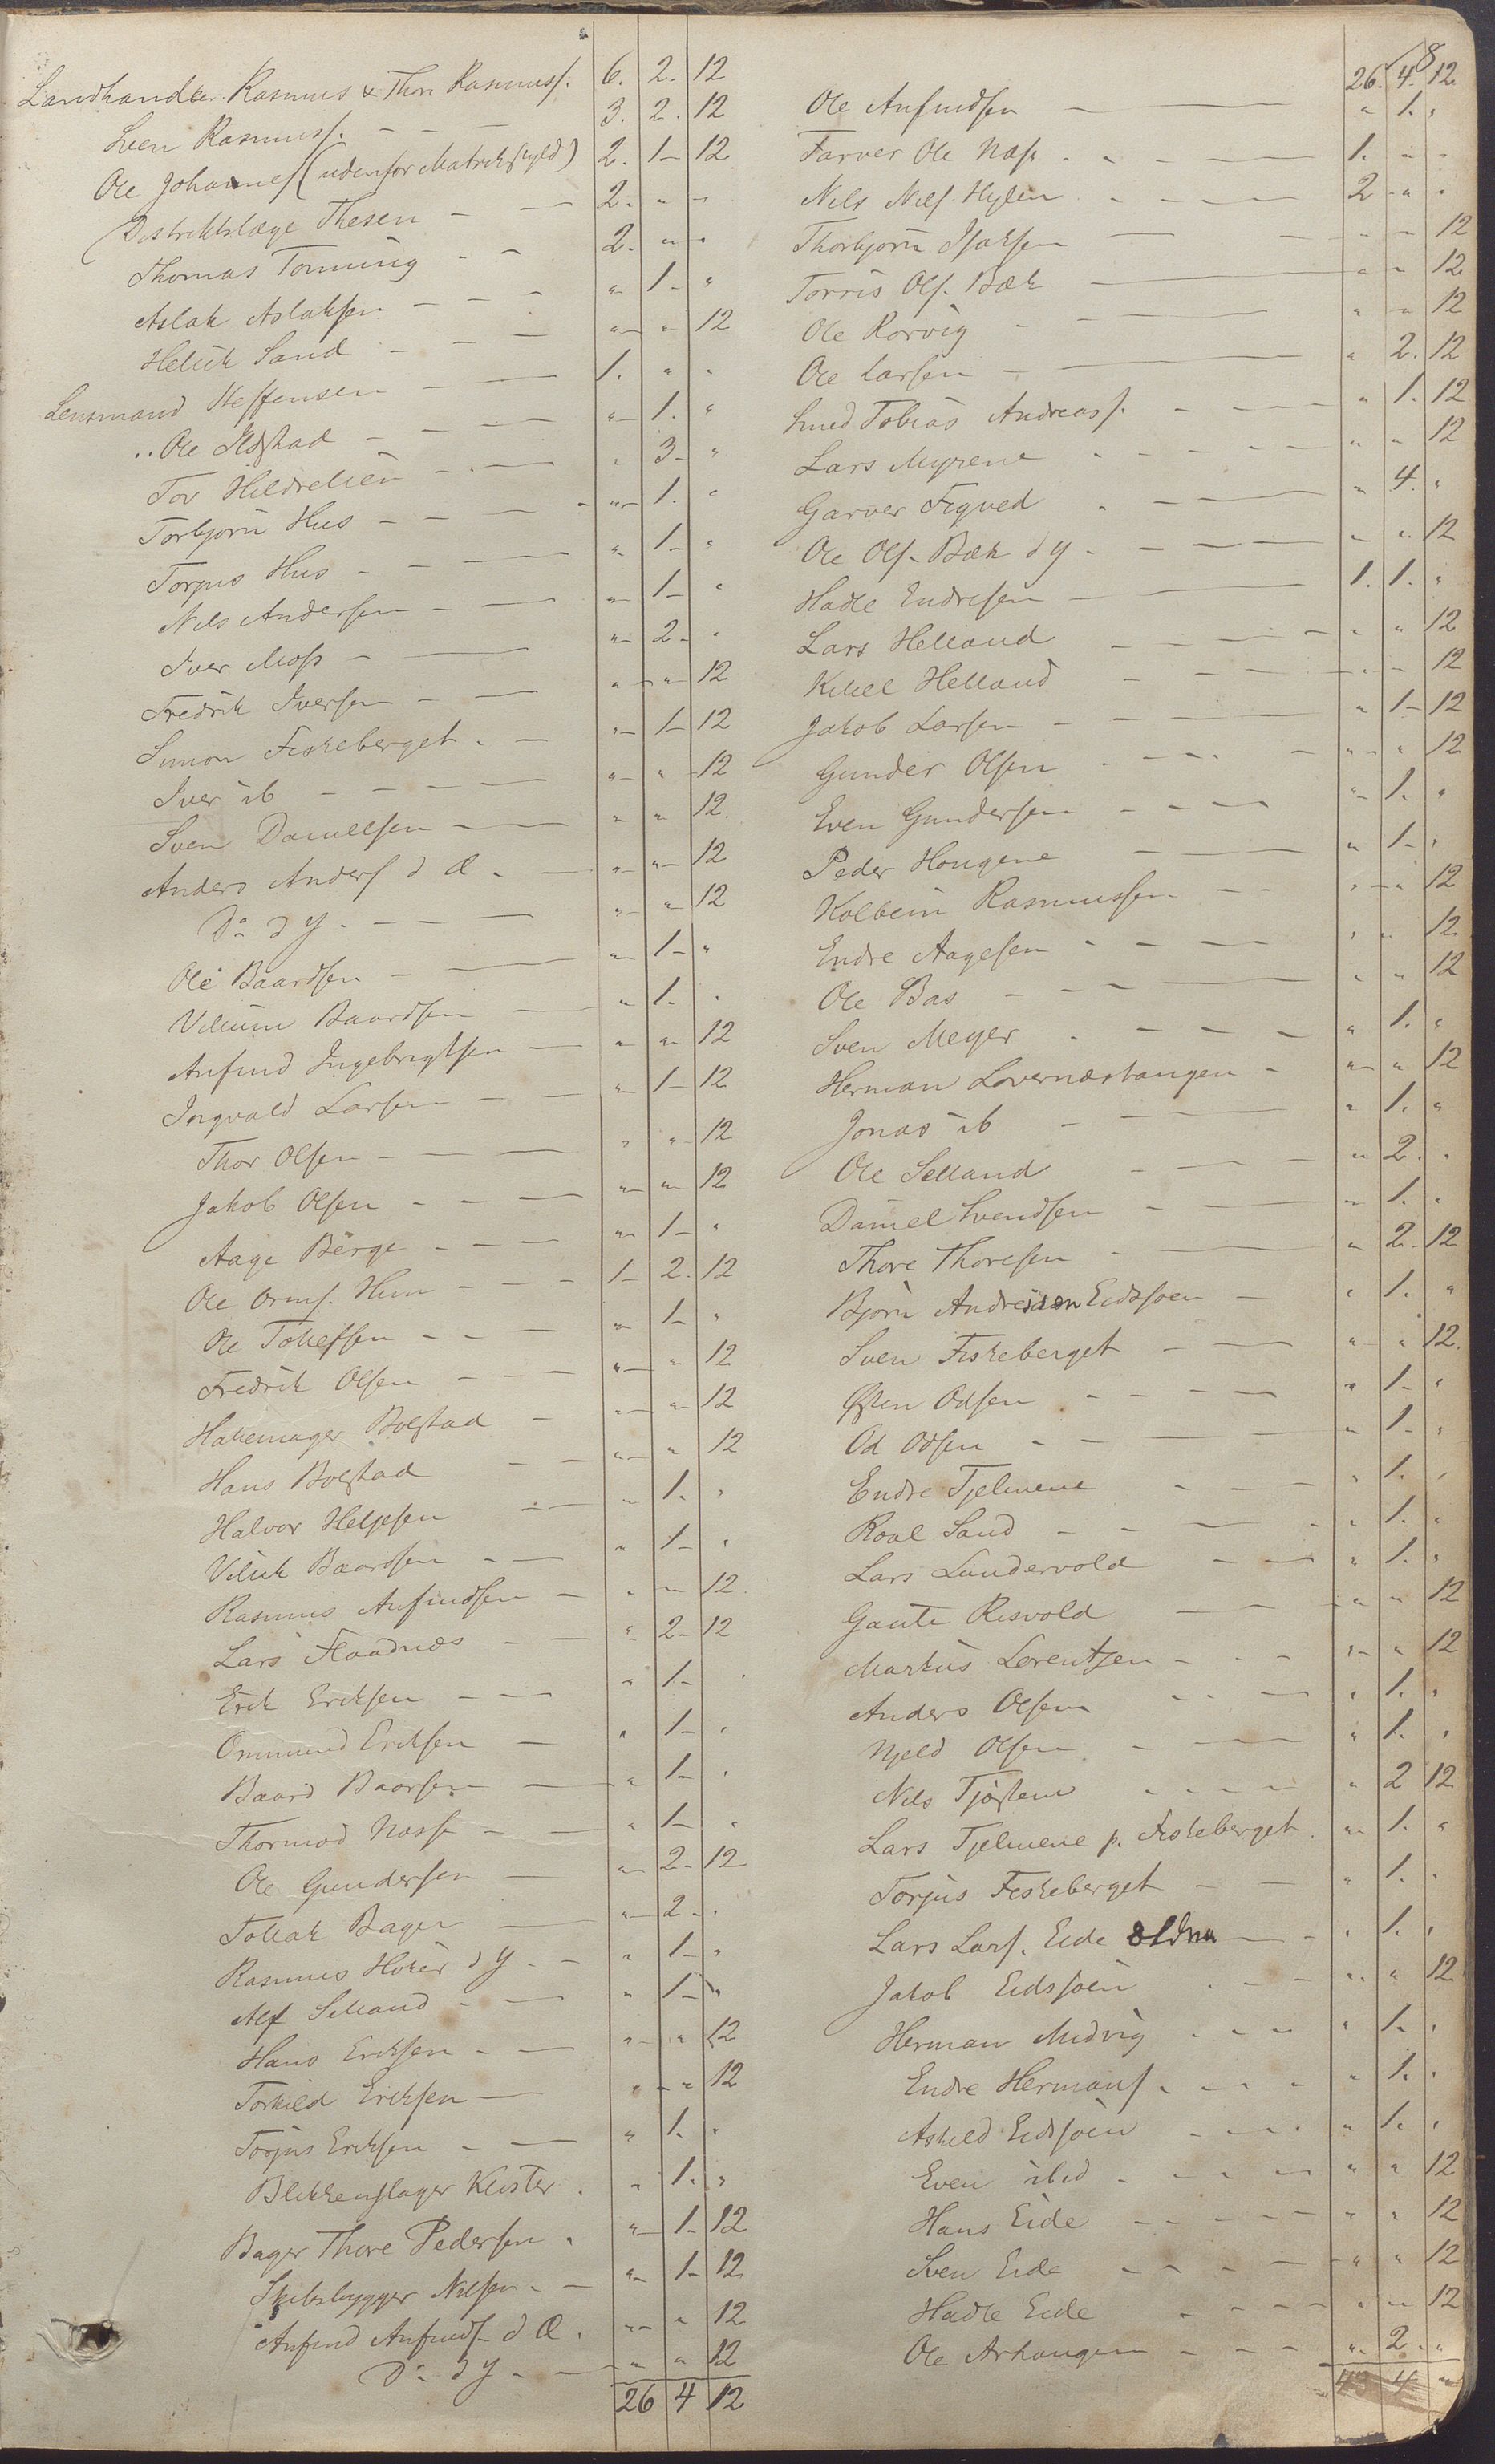 Landhandler Rasmus & Thore Rasmuss. 6. 2. 12
Sven Rasmuss. - - - 3. 2. 12
Ole Johannes (udenfor Matrikskyld) 2. 1- 12
Distriktslæge Thesen - - - 2. " -
Thomas Tonning - - 2. " "
Aslak Aslaksen - - - " 1- "
Helik Sand - - - " " 12
Lensmand Steffensen - - 1. " "
Ole Ilstad - - - " 1. "
Tov Hildrelien - - " 3- "
Torbjørn Hus - - - " 1. "
Torjus Hus - - - " 1- "
Nils Andersen - - " 1- "
Iver Moss - - " 2- "
Fredrik Iversen - - " " 12
Simon Fiskeberget - - " 1- 12
Iver ib - - - - " " 12
Sven Danielsen - - " " 12.
Anders Anders. d Æ. - " " 12
Do d Y. - - - " " 12
Ole Baardsen - - " 1- "
Villum Baardsen - " 1. "
Anfind Ingebrigtsen - " " 12
Ingvald Larsen - - " 1- 12
Thor Olsen - - - " " 12
Jakob Olsen - - - " " 12
Aage Berge - - - " 1- "
Ole Orms. Hun - - - 1- 2. 12
Ole Tollefsen - - - " 1- "
Fredrik Olsen - - - " " 12
Bolstad - " " 12
Hans Bolstad - - " " 12
Halvor Helgesen - - " 1. "
Vilik Baardsen - - " 1- "
Rasmus Anfindsen - " " 12.
Lars Flaadnæs - - " 2- 12
Erik Eriksen - - " 1- "
Ommund Eriksen - " 1- "
Baard Baarsen - " 1- "
Thormod Næss - - " 1- "
Ole Gundersen - " 2- 12
Tollak Bager - " 2- "
Rasmus d Y. - " 1- "
Alf Selland - - " 1- "
Hans Eriksen - - " " 12
Torkild Eriksen - " " 12
Torjus Eriksen - - " 1. "
Blikkenslager Kloster . " 1. "
Bager Thore Pedersen . " 1- 12
Skibsbygger Nilsen - - " 1- 12
Anfind Anfinds. d Æ. " " 12
Do d Y. - - " " 12
26 4 12
8
26. 4. 12
Ole Anfindsen - - " 1. "
Farver Ole Næss - - - 1. " "
Nils Nils. Hylen - - - 2 " "
Thorbjørn Isaksen - - " " 12
Torris Ols. Bæk - " " 12
Ole Rørvig - - " " 12
Ole Larsen - - " 2. 12
Smed Tobias Andreass. - - " 1. 12
Lars Myrene - - - " " 12
Garver Figved - - " 4. "
Ole Ols. Bæk d Y. - - " " 12
Hadle Endresen - - 1. 1. "
Lars Helland - - - " " 12
Kitel Helland - - - " " 12
Jakob Larsen - - - " 1- 12
Gunder Olsen - - - " " 12
Even Gundersen - - - " 1. "
Peder Hougene - - " 1- "
Kolbein Rasmussen - - " " 12
Endre Aagesen - - - " " 12
Ole Bas - - - " " 12
Sven Meyer - - - " 1. "
Herman Lovernæstangen - " " 12
Jonas ib - - - " 1. "
Ole Selland - - - " 2. "
Daniel Svendsen - - - " 1. "
Thore Thoresen - - " 2- 12
Bjørn Andreassen Eidssoen - " 1. "
Sven Fiskeberget - - " " 12.
Østen Odsen - - - " 1- "
Od Odsen - - - " 1- "
Endre Tjelmene - - - " 1. "
Roal Sand - - - " 1. "
Lars Lundervold - - " 1. "
Gaute Risvold - - " " 12
Markus Lorentzen - - - " " 12
Anders Olsen - - - " 1. "
Njeld Olsen - - " 1. "
Nils Tjøstem - - - " 2 12
Lars Tjelmene p. Fiskeberget . " 1. "
Torjus Fiskeberget - - " 1. "
Lars Lars. Eide - - " 1. "
Jakob Eidssoen - - - " " 12
Herman Midvig - - - " 1- "
Endre Hermans. - - - " 1. "
Askild Eidssoen - - - " 1. "
Even ibid - - - " " 12
Hans Eide - - - - " " 12
Sven Eide - - - - " " 12
Hadle Eide - - - - " " 12
Ole Arhaugen - - - " 2- "
43 4 "